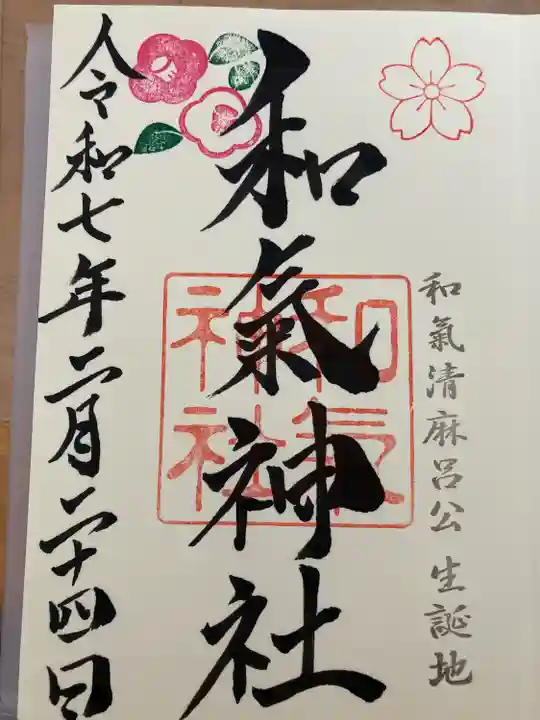 和氣清麻呂公 生誕地
和氣神社
和氣神社
令和七年二月二十四日